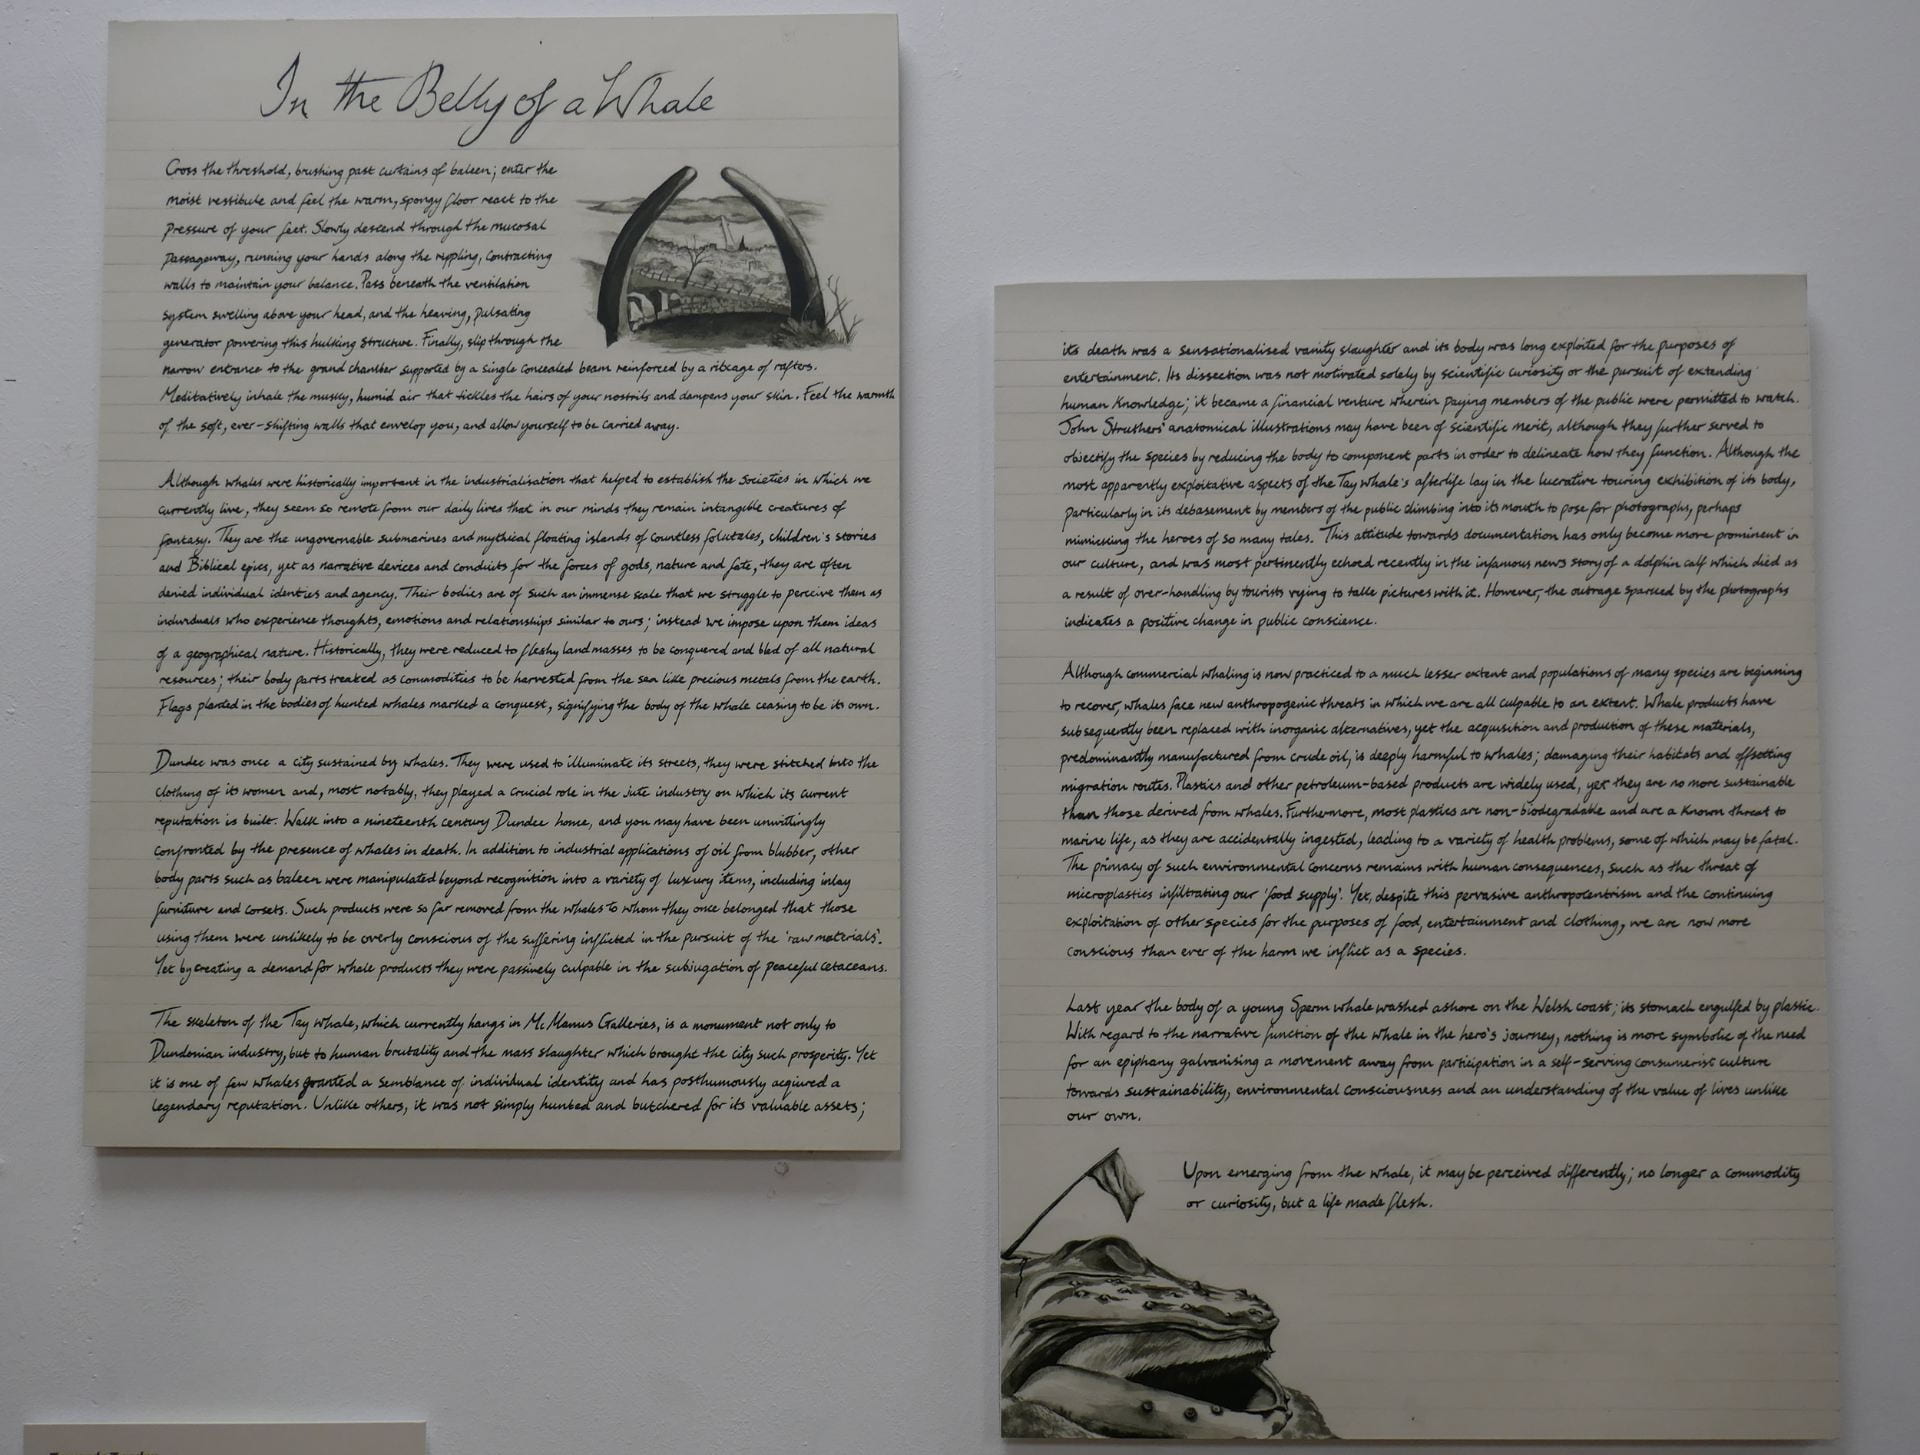 In the Belly of a Whale
Cross the threshold, brushing past curtains of baleen; enter the
moist vestibule and feel the warm, spongy floor react to the
pressure of your feet. Slowly descend through the mucosal
passageway, running your hands along the rippling, contracting
walls to maintain your balance. Pass beneath the ventilation
system swelling above your head, and the heaving, pulsating
generator powering this hulking structure. Finally, slip through the
narrow entrance to the grand chamber supported by a single concealed beam reinforced by a ribcage of rafters.
Meditatively inhale the musky, humid air that tickles the hairs of your nostrils and dampens your skin. Feel the warmth
of the soft, ever-shifting walls that envelop you, and allow yourself to be carried away.
Although whales were historically important in the industrialisation that helped to establish the societies in which we
currently live, they seem so remote from our daily lives that in our minds they remain intangible creatures of
fantasy. They are the ungovernable submarines and mythical floating islands of countless folktales, children's stories
and Biblical epics, yet as narrative devices and conduits for the forces of gods, nature and fate, they are often
denied individual identies and agency. Their bodies are of such an immense scale that we struggle to perceive them as
individuals who experience thoughts, emotions and relationships similar to ours; instead we impose upon them ideas
of a geographical nature. Historically, they were reduced to fleshy landmasses to be conquered and bled of all natural
resources; their body parts treated as commodities to be harvested from the sea like precious metals from the earth.
Flags planted in the bodies of hunted whales marked a conquest, signifying the body of the whale ceasing to be its own.
Dundee was once a city sustained by whales. They were used to illuminate its streets, they were stitched into the
clothing of its women and, most notably, they played a crucial role in the jute industry on which its current
reputation is built. Walk into a nineteenth century Dundee home, and you may have been unwittingly
confronted by the presence of whales in death. In addition to industrial applications of oil from blubber, other
body parts such as baleen were manipulated beyond recognition into a variety of luxury items, including inlay
furniture and corsets. Such products were so far removed from the whales to whom they once belonged that those
using them were unlikely to be overly conscious of the suffering inflicted in the pursuit of the 'raw materials'.
Yet by creating a demand for whale products they were passively culpable in the subjugation of peaceful cetaceans.
The skeleton of the Tay Whale, which currently hangs in McManus Galleries, is a monument not only to
Dundonian industry, but to human brutality and the mass slaughter which brought the city such prosperity. Yet
it is one of few whales granted a semblance of individual identity and has posthumously acquired a
legendary reputation. Unlike others, it was not simply hunted and butchered for its valuable assets;
its death was a sensationalised vanity slaughter and its body was long exploited for the purposes of
entertainment. Its dissection was not motivated solely by scientific curiosity or the pursuit of extending
human knowledge; it became a financial venture wherein paying members of the public were permitted to watch.
John Struthers' anatomical illustrations may have been of scientific merit, although they further served to
objectify the species by reducing the body to component parts in order to delineate how they function. Although the
most apparently exploitative aspects of the Tay Whale's afterlife lay in the lucrative touring exhibition of its body,
particularly in its debasement by members of the public climbing into its mouth to pose for photographs, perhaps
mimicking the heroes of so many tales. This attitude towards documentation has only become more prominent in
our culture, and was most pertinently echoed recently in the infamous news story of a dolphin calf which died as
a result of over-handling by tourists vying to take pictures with it. However, the outrage sparked by the photographs
indicates a positive change in public conscience.
Although commercial whaling is now practiced to a much lesser extent and populations of many species are beginning
to recover, whales face new anthropogenic threats in which we are all culpable to an extent. Whale products have
subsequently been replaced with inorganic alternatives, yet the acquisition and production of these materials,
predominantly manufactured from crude oil, is deeply harmful to whales; damaging their habitats and offsetting
migration routes. Plastics and other petroleum-based products are widely used, yet they are no more sustainable
than those derived from whales. Furthermore, most plastics are non-biodegradable and are a known threat to
marine life, as they are accidentally ingested, leading to a variety of health problems, some of which may be fatal.
The primacy of such environmental concerns remains with human consequences, such as the threat of
microplastics infiltrating our 'food supply'. Yet, despite this pervasive anthropocentrism and the continuing
exploitation of other species for the purposes of food, entertainment and clothing, we are now more
conscious than ever of the harm we inflict as a species.
Last year the body of a young Sperm whale washed ashore on the Welsh coast; its stomach engulfed by plastic.
With regard to the narrative function of the whale in the hero's journey, nothing is more symbolic of the need
for an epiphany galvanising a movement away from participation in a self-serving consumerist culture
towards sustainability, environmental consciousness and an understanding of the value of lives unlike
our own.
Upon emerging from the whale, it may be perceived differently; no longer a commodity
or curiosity, but a life made flesh.